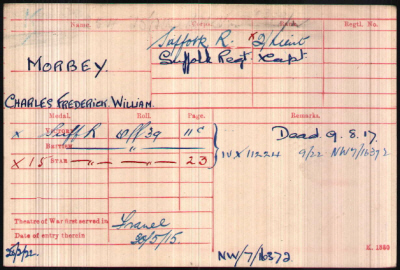 Name. Corps. Rank. Regtl. No.
Suffolk R. 2/Lieut
MORBEY. Suffolk Regt. Capt
CHARLES FREDERICK WILLIAM.
Medal. Roll. Page. Remarks.
X Victory Suff R O/ff 39 11 c Dead 9.8.17.
British — " — — " — IV X 11224 9/22 NW/7/16372
X 15 STAR — " — — " — 23
Theatre of War first served in France
Date of entry therein 30/5/15
K. 1380
NW/7/16372